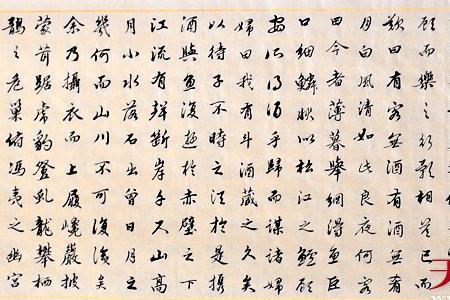 顧而樂之行歌相答已而
歎曰有客無酒有酒無肴
月白風清如此良夜何客
曰今者薄暮舉網得魚巨
口細鱗狀似松江之鱸顧
安所得酒乎歸而謀諸婦
婦曰我有斗酒藏之久矣
以待子不時之須於是攜
酒與魚復遊於赤壁之下
江流有聲斷岸千尺山高
月小水落石出曾日月之
幾何而山川不可復識矣
余乃攝衣而上履巉巖披
蒙茸踞虎豹登虬龍攀栖
鶻之危巢俯馮夷之幽宮